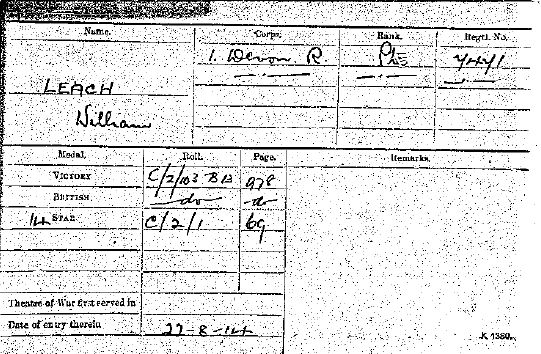 Name. Corps. Rank. Regtl. No.
1. Devon. R. Pte
LEACH
William
Medal. Roll. Page. Remarks.
VICTORY C/2/103 B13 978
BRITISH do do
14 STAR C/2/1 69
Theatre of War first served in
Date of entry therein 22-8-14
K 1380.